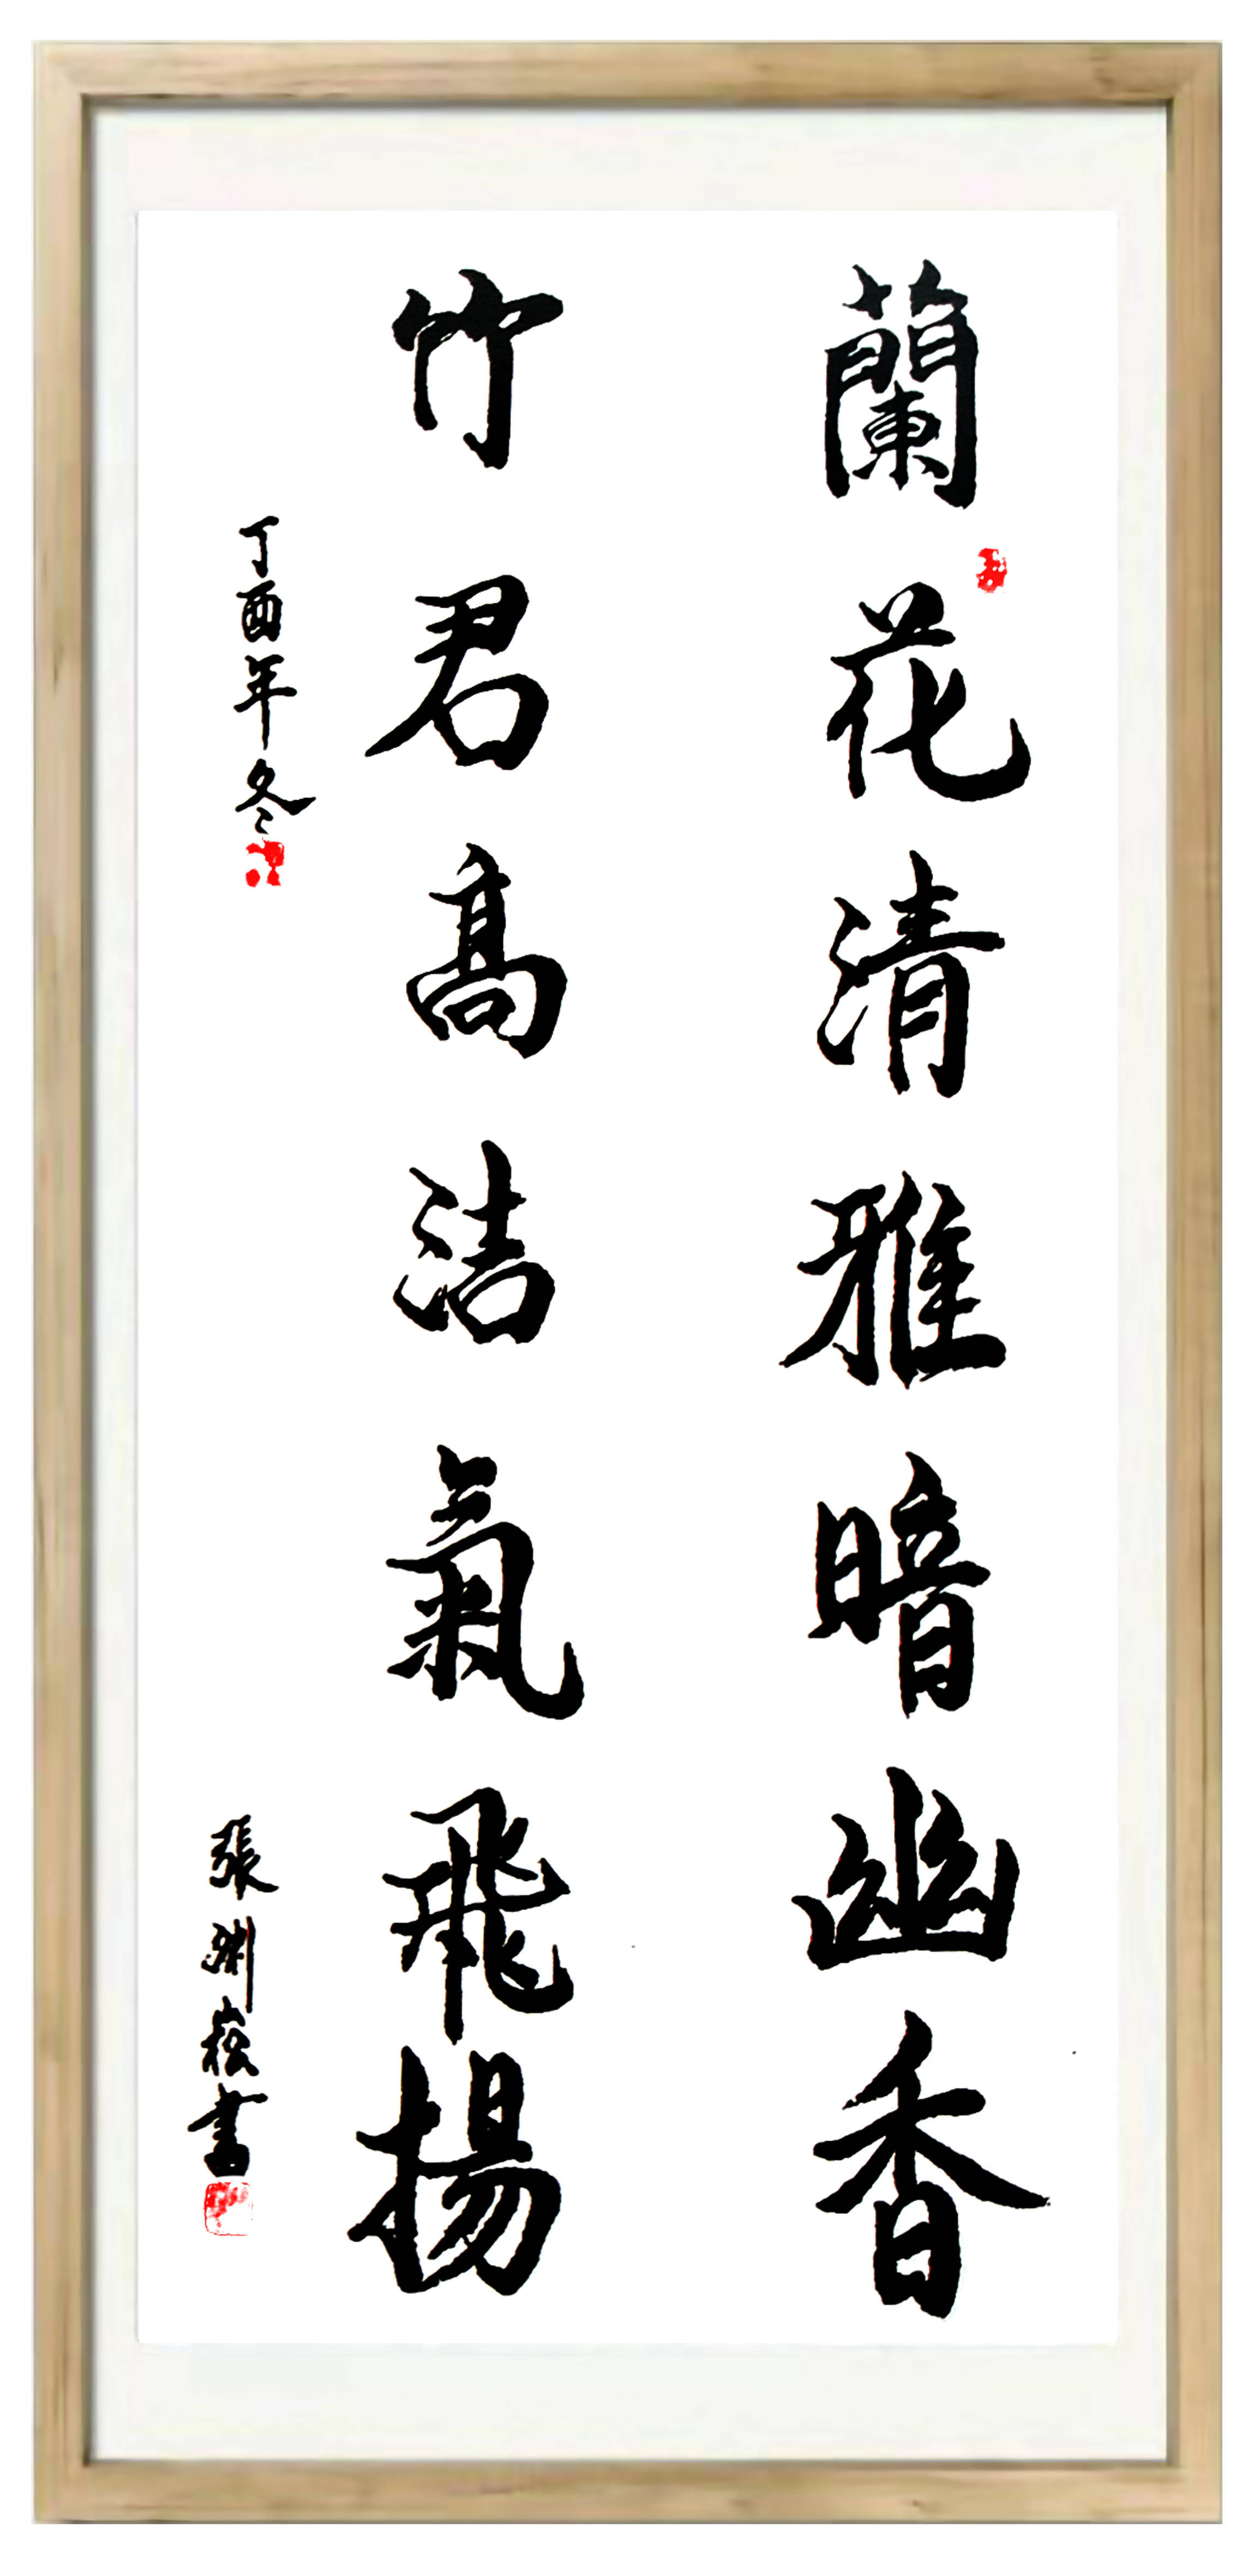 蘭花清雅暗幽香
竹君高洁氣飛揚
丁酉年冬
張渊崧書